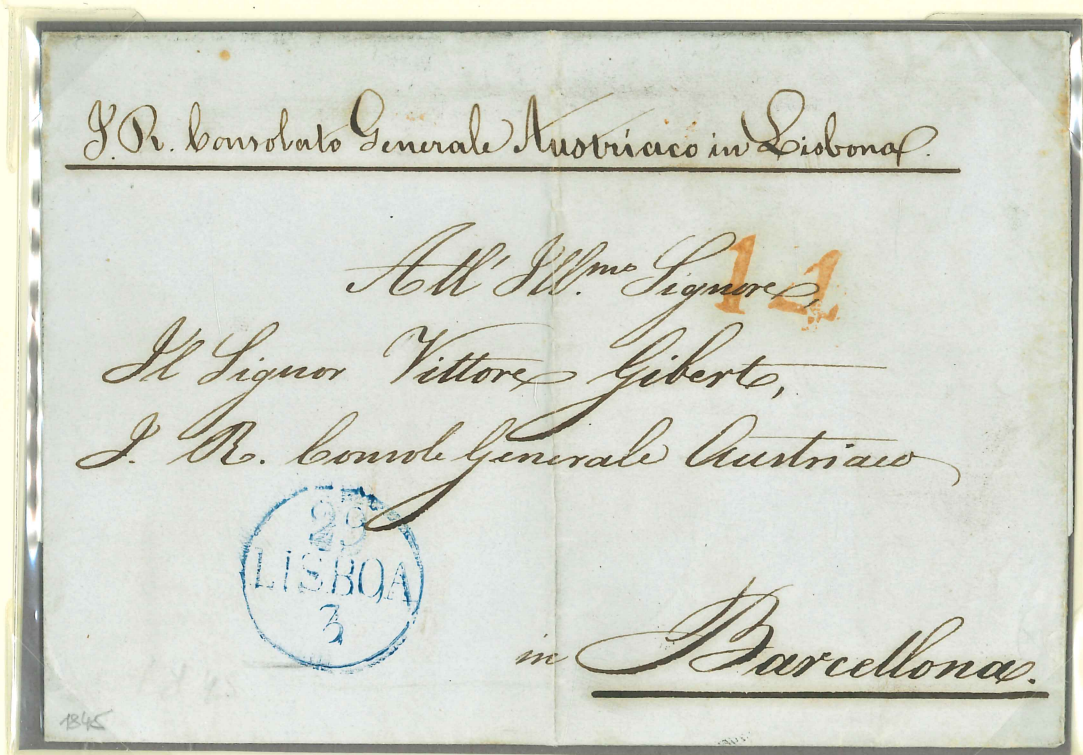 I. R. Consolato Generale Austriaco in Lisbona.
14
All' Ill.mo Signore,
Il Signor Vittore Gibert,
I. R. Console Generale Austriaco
29
LISBOA
3
in Barcellona.
1845